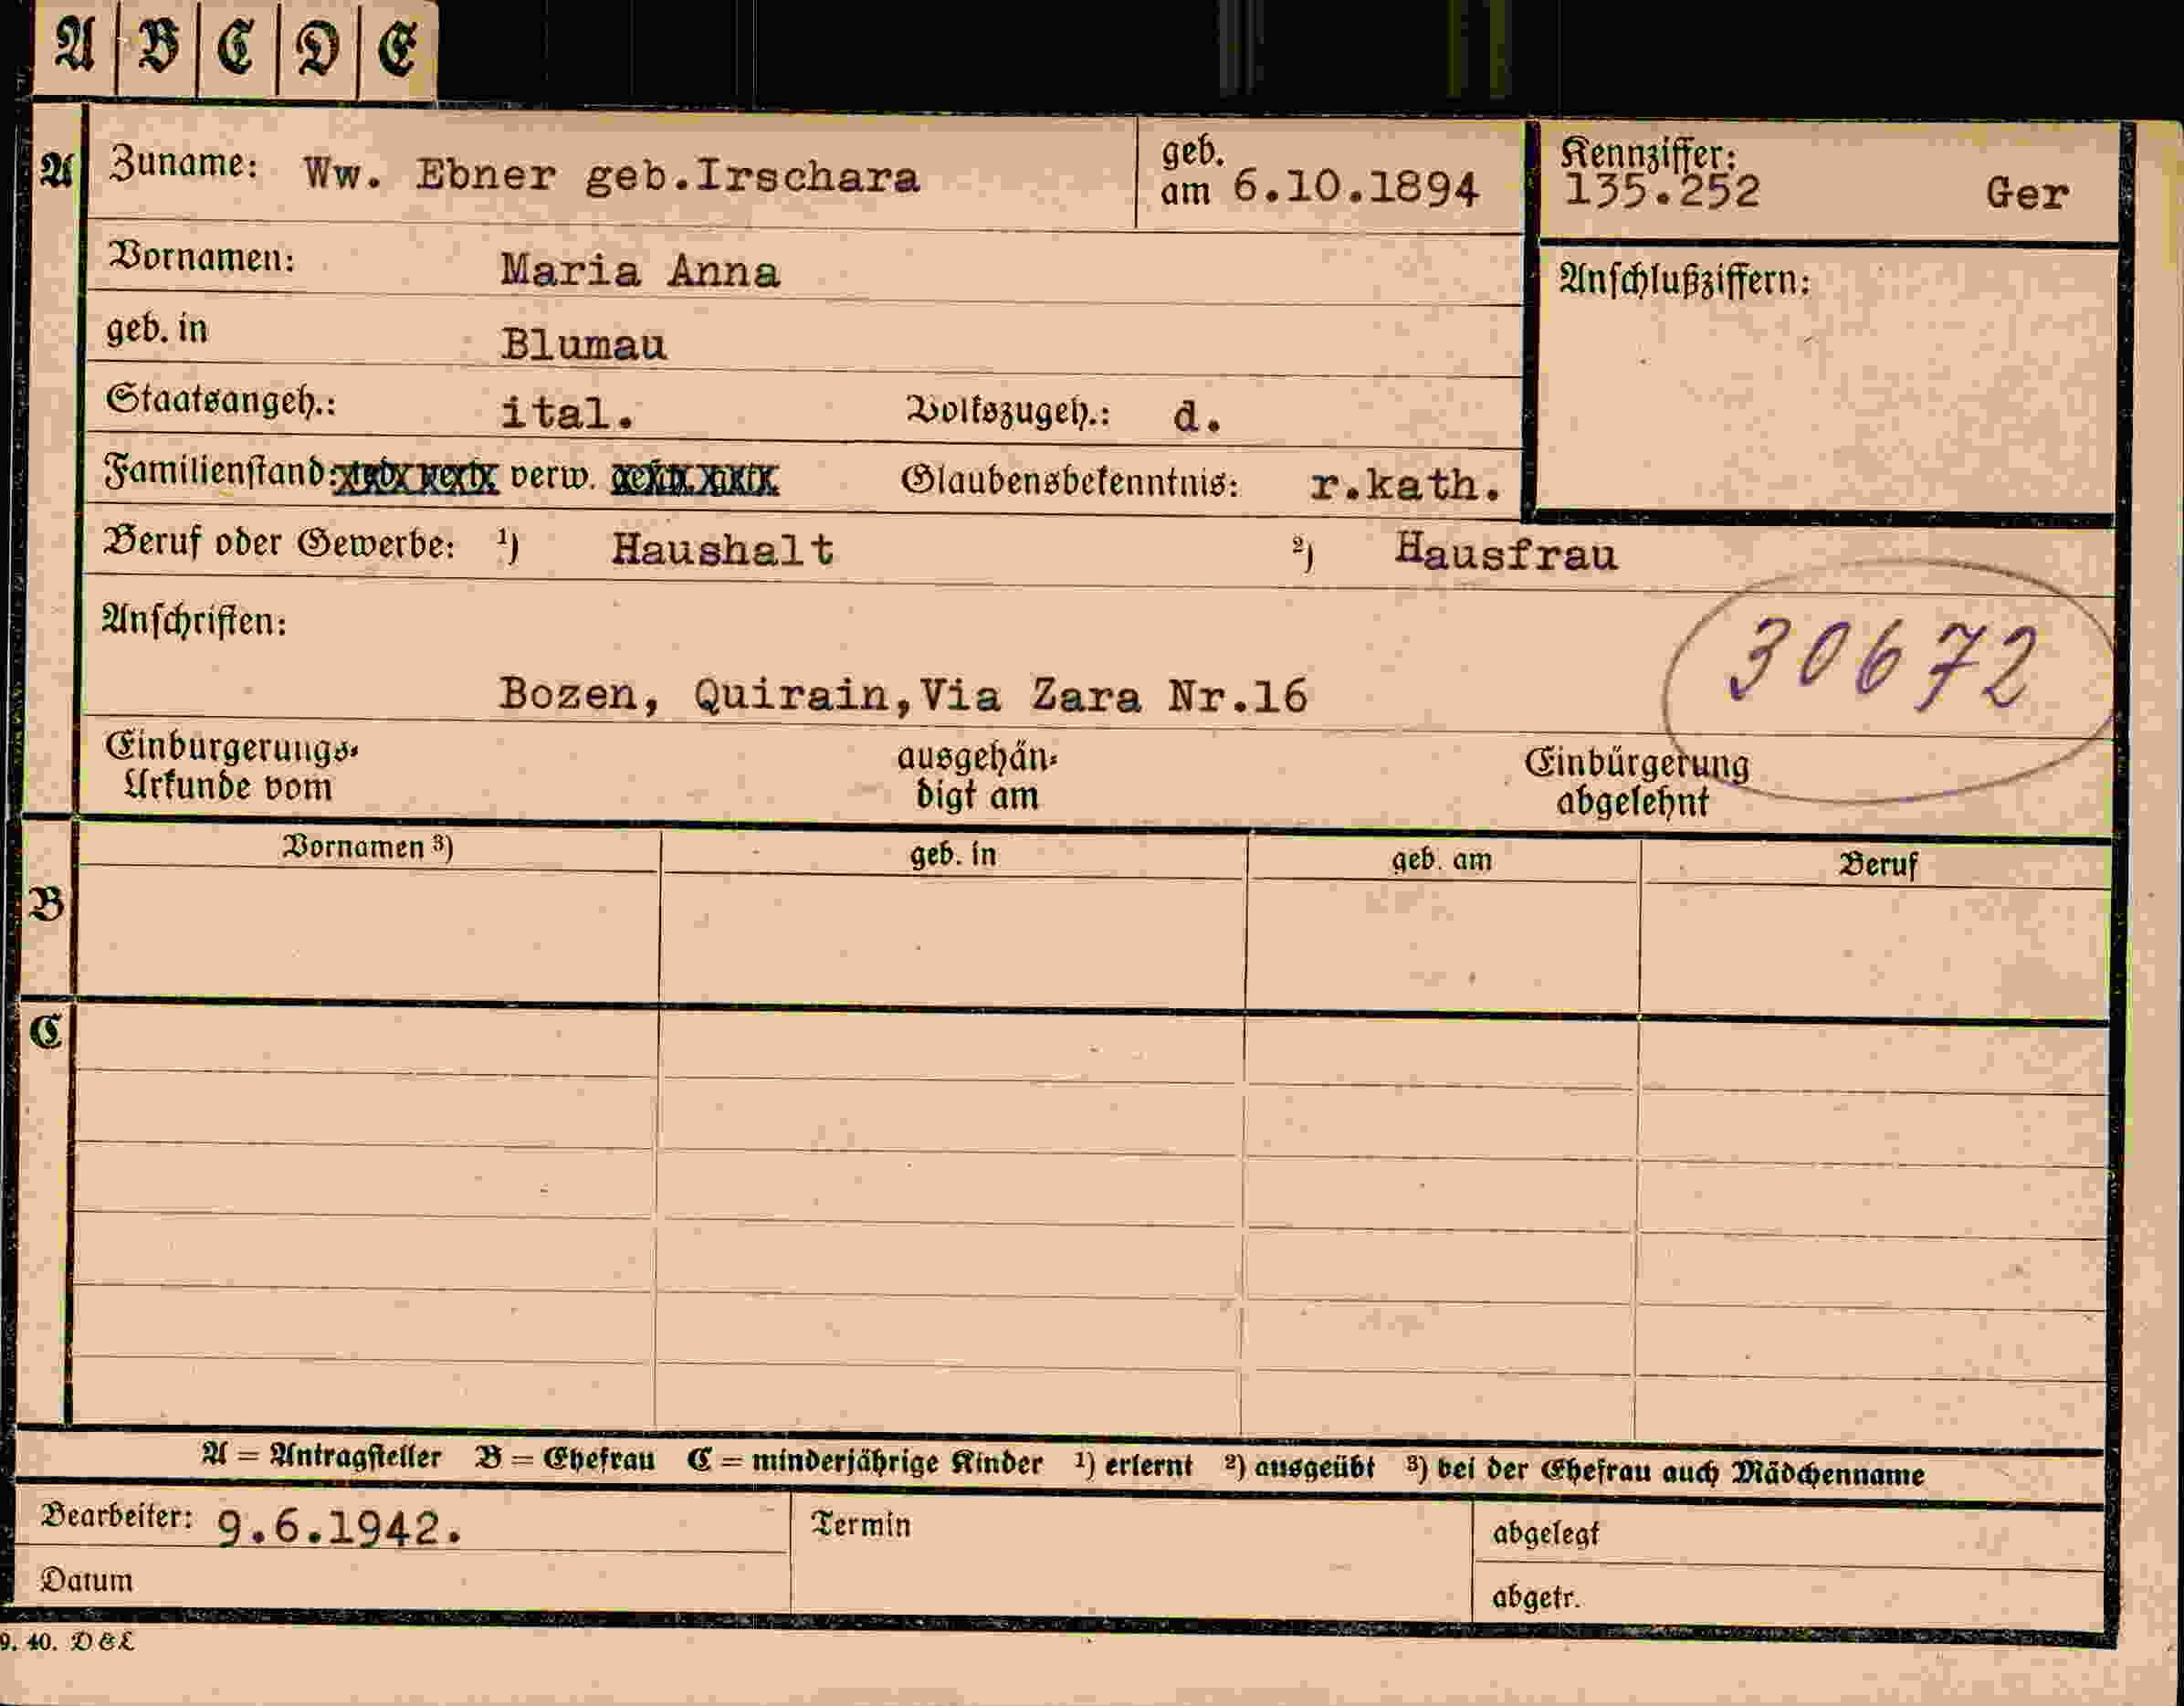 A B C D E
A Zuname: Ww. Ebner geb.Irschara geb. am 6.10.1894 Kennziffer: 135.252 Ger
Vornamen: Maria Anna Anschlußziffern:
geb. in Blumau
Staatsangeh.: ital. Volkszugeh.: d.
Familienstand: verw. Glaubensbekenntnis: r.kath.
Beruf oder Gewerbe: ¹) Haushalt ²) Hausfrau
Anschriften:
30672
Bozen, Quirain,Via Zara Nr.16
Einbürgerungs- ausgehän- Einbürgerung
Urkunde vom digt am abgelehnt
Vornamen ³) geb. in geb. am Beruf
B
C
A = Antragsteller B = Ehefrau C = minderjährige Kinder ¹) erlernt ²) ausgeübt ³) bei der Ehefrau auch Mädchenname
Bearbeiter: 9.6.1942. Termin abgelegt
Datum abgetr.
9. 40. D & L